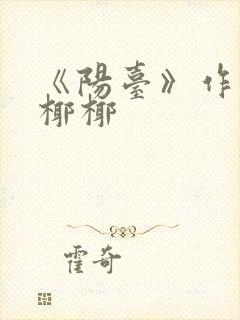 《陽臺》作
椰椰
霍奇